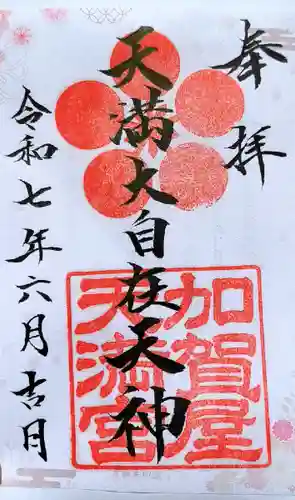 奉拝
天満大自在天神
加賀屋
天満宮
令和七年六月吉日